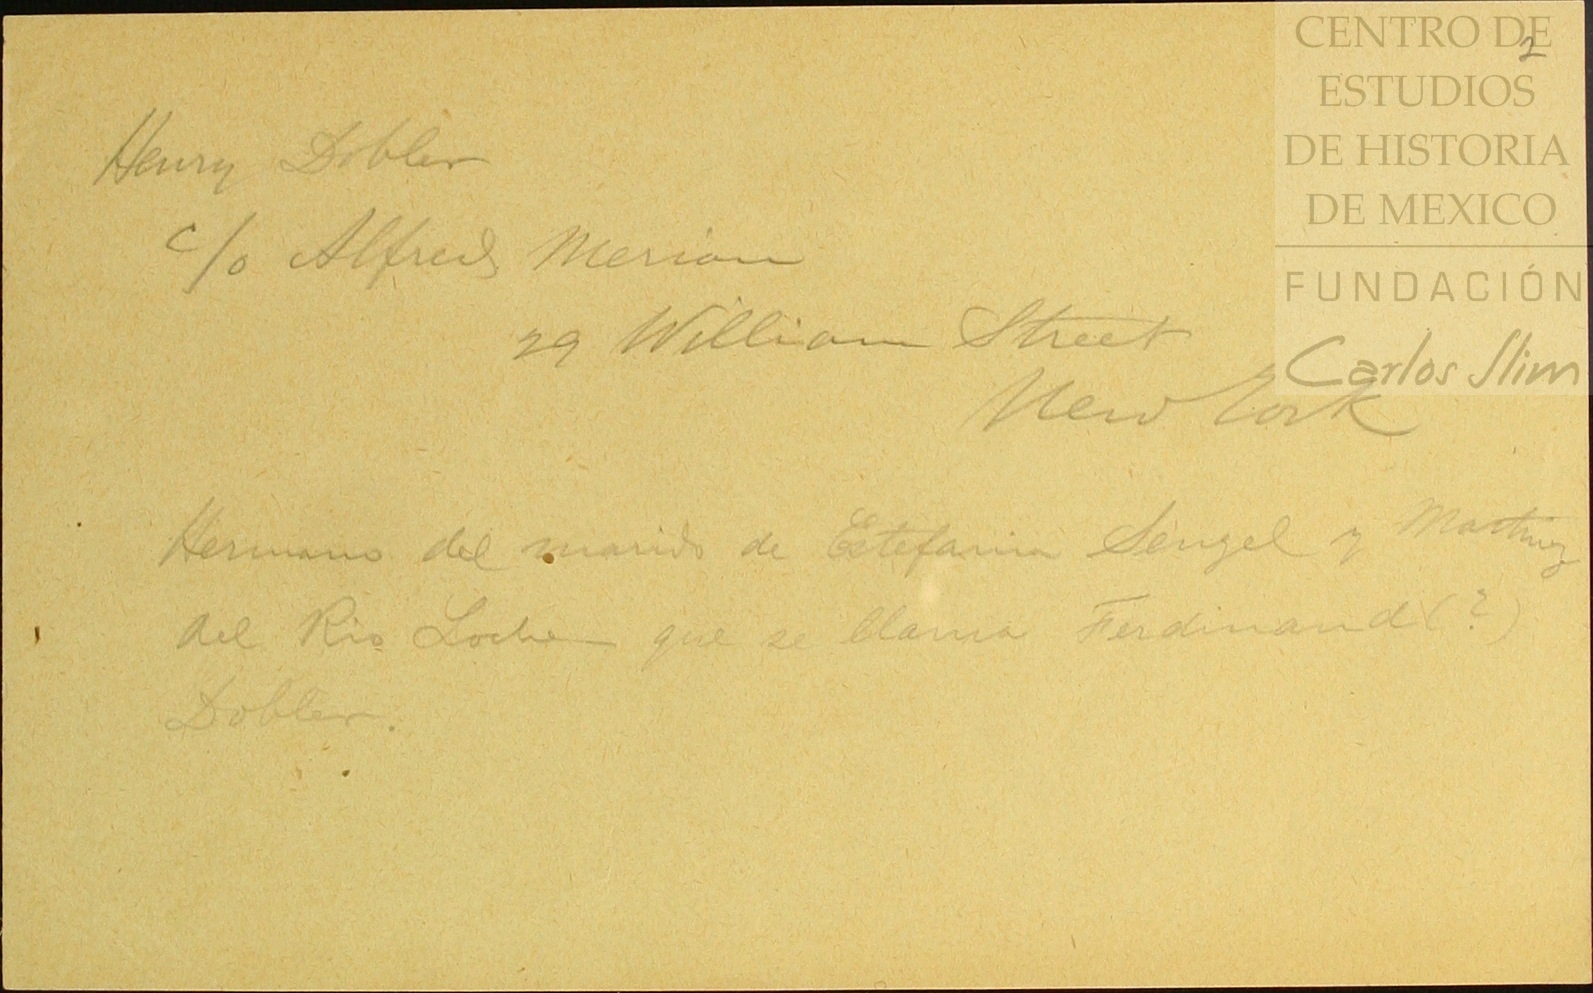 CENTRO DE
ESTUDIOS
DE HISTORIA
DE MEXICO
FUNDACIÓN
Carlos Slim
2
Henry Dobler
c/o Alfred Merian
29 William Street
New York
Hermano del marido de Estefania Sengel y Martinez
del Rio que se llama Ferdinand (?)
Dobler.